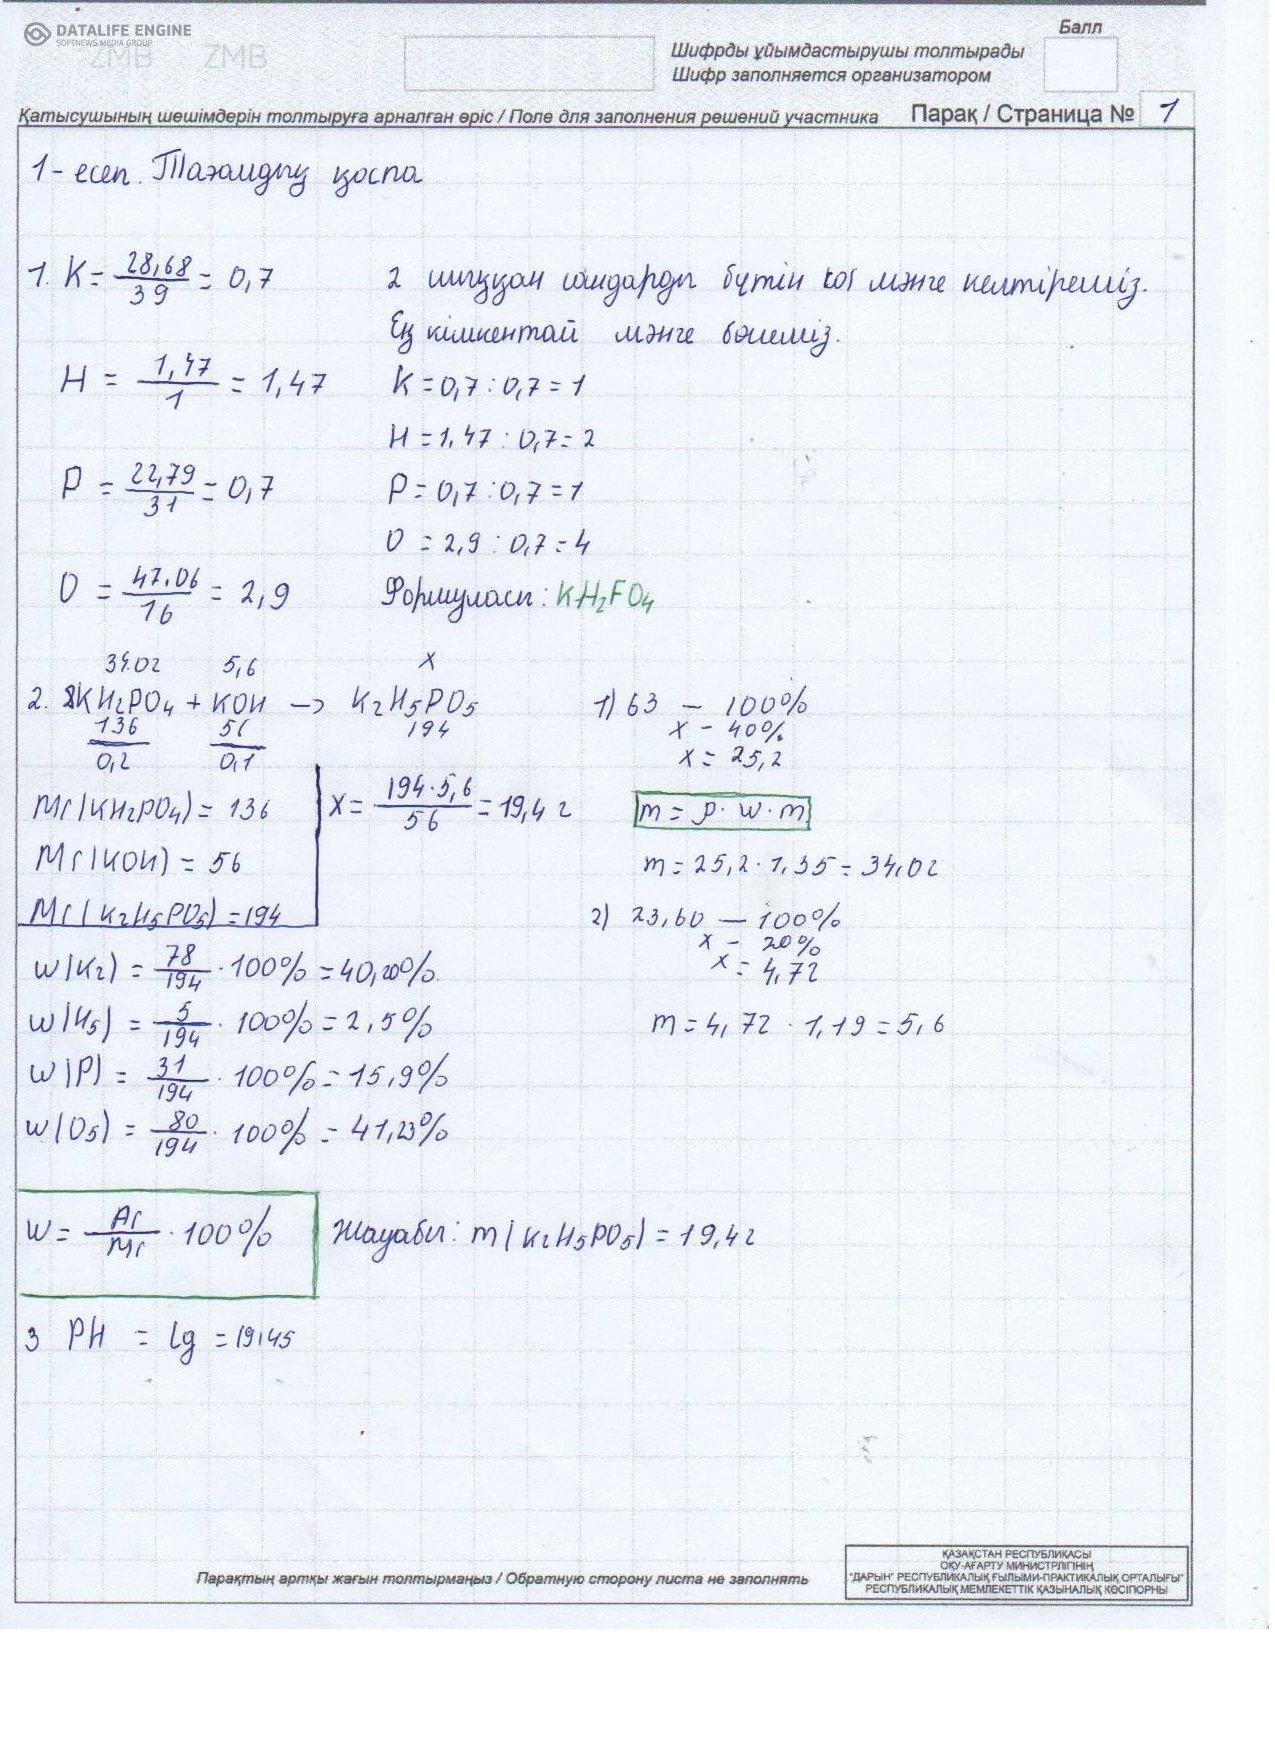 DATALIFE ENGINE
SOFTNEWS MEDIA GROUP
ZMB ZMB
Балл
Шифрды ұйымдастырушы толтырады
Шифр заполняется организатором
Қатысушының шешімдерін толтыруға арналған өріс / Поле для заполнения решений участника
Парақ / Страница № 1
1- есеп. Тағамдық қоспа
1. K = 28,68/39 = 0,7
2 шыққан сандарды бүтін мәнге келтіреміз.
Ең кішкентай мәнге бөлеміз.
H = 1,47/1 = 1,47
K = 0,7 : 0,7 = 1
H = 1,47 : 0,7 = 2
P = 22,79/31 = 0,7
P = 0,7 : 0,7 = 1
O = 2,9 : 0,7 = 4
O = 47.06/16 = 2,9
Формуласы: KH₂FO₄
34.02 5,6 x
2. KH₂PO₄ + KOH → K₂H₅PO₅
136 56 194
0,2 0,1
1) 63 — 100%
x - 40%
x = 25,2
Mr(KH₂PO₄) = 136
x = 194·5,6/56 = 19,4 г
m = ρ · w · m
Mr(KOH) = 56
m = 25,2 · 1,35 = 34,02
Mr(K₂H₅PO₅) = 194
2) 23,60 — 100%
x - 20%
x = 4,72
w(K₂) = 78/194 · 100% = 40,20%.
w(H₅) = 5/194 · 100% = 2,5%
m = 4,72 · 1,19 = 5,6
w(P) = 31/194 · 100% = 15,9%
w(O₅) = 80/194 · 100% = 41,23%
w = Ar/Mr · 100%
Жауабы: m(K₂H₅PO₅) = 19,4г
3 PH = lg = 19,45
Парақтың артқы жағын толтырмаңыз / Обратную сторону листа не заполнять
ҚАЗАҚСТАН РЕСПУБЛИКАСЫ
ОҚУ-АҒАРТУ МИНИСТРЛІГІНІҢ
"ДАРЫН" РЕСПУБЛИКАЛЫҚ ҒЫЛЫМИ-ПРАКТИКАЛЫҚ ОРТАЛЫҒЫ"
РЕСПУБЛИКАЛЫҚ МЕМЛЕКЕТТІК ҚАЗЫНАЛЫҚ КӘСІПОРНЫ